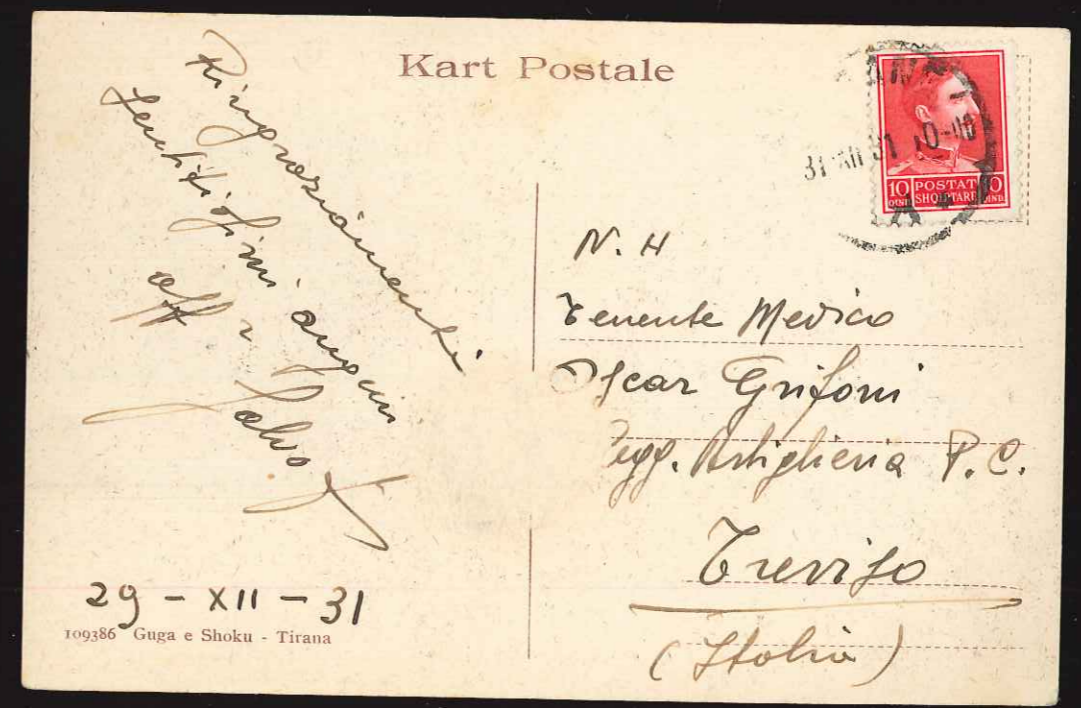 Kart Postale
Ringraziamenti
sentitissimi auguri
aff
29 - XII - 31
109386 Guga e Shoku - Tirana
31 XII 31
10 POSTAT 10
QIND. SHQIPTARE QIND.
N. H
Tenente Medico
Oscar Grifoni
Regg. Artiglieria P. C.
Treviso
(Italia)